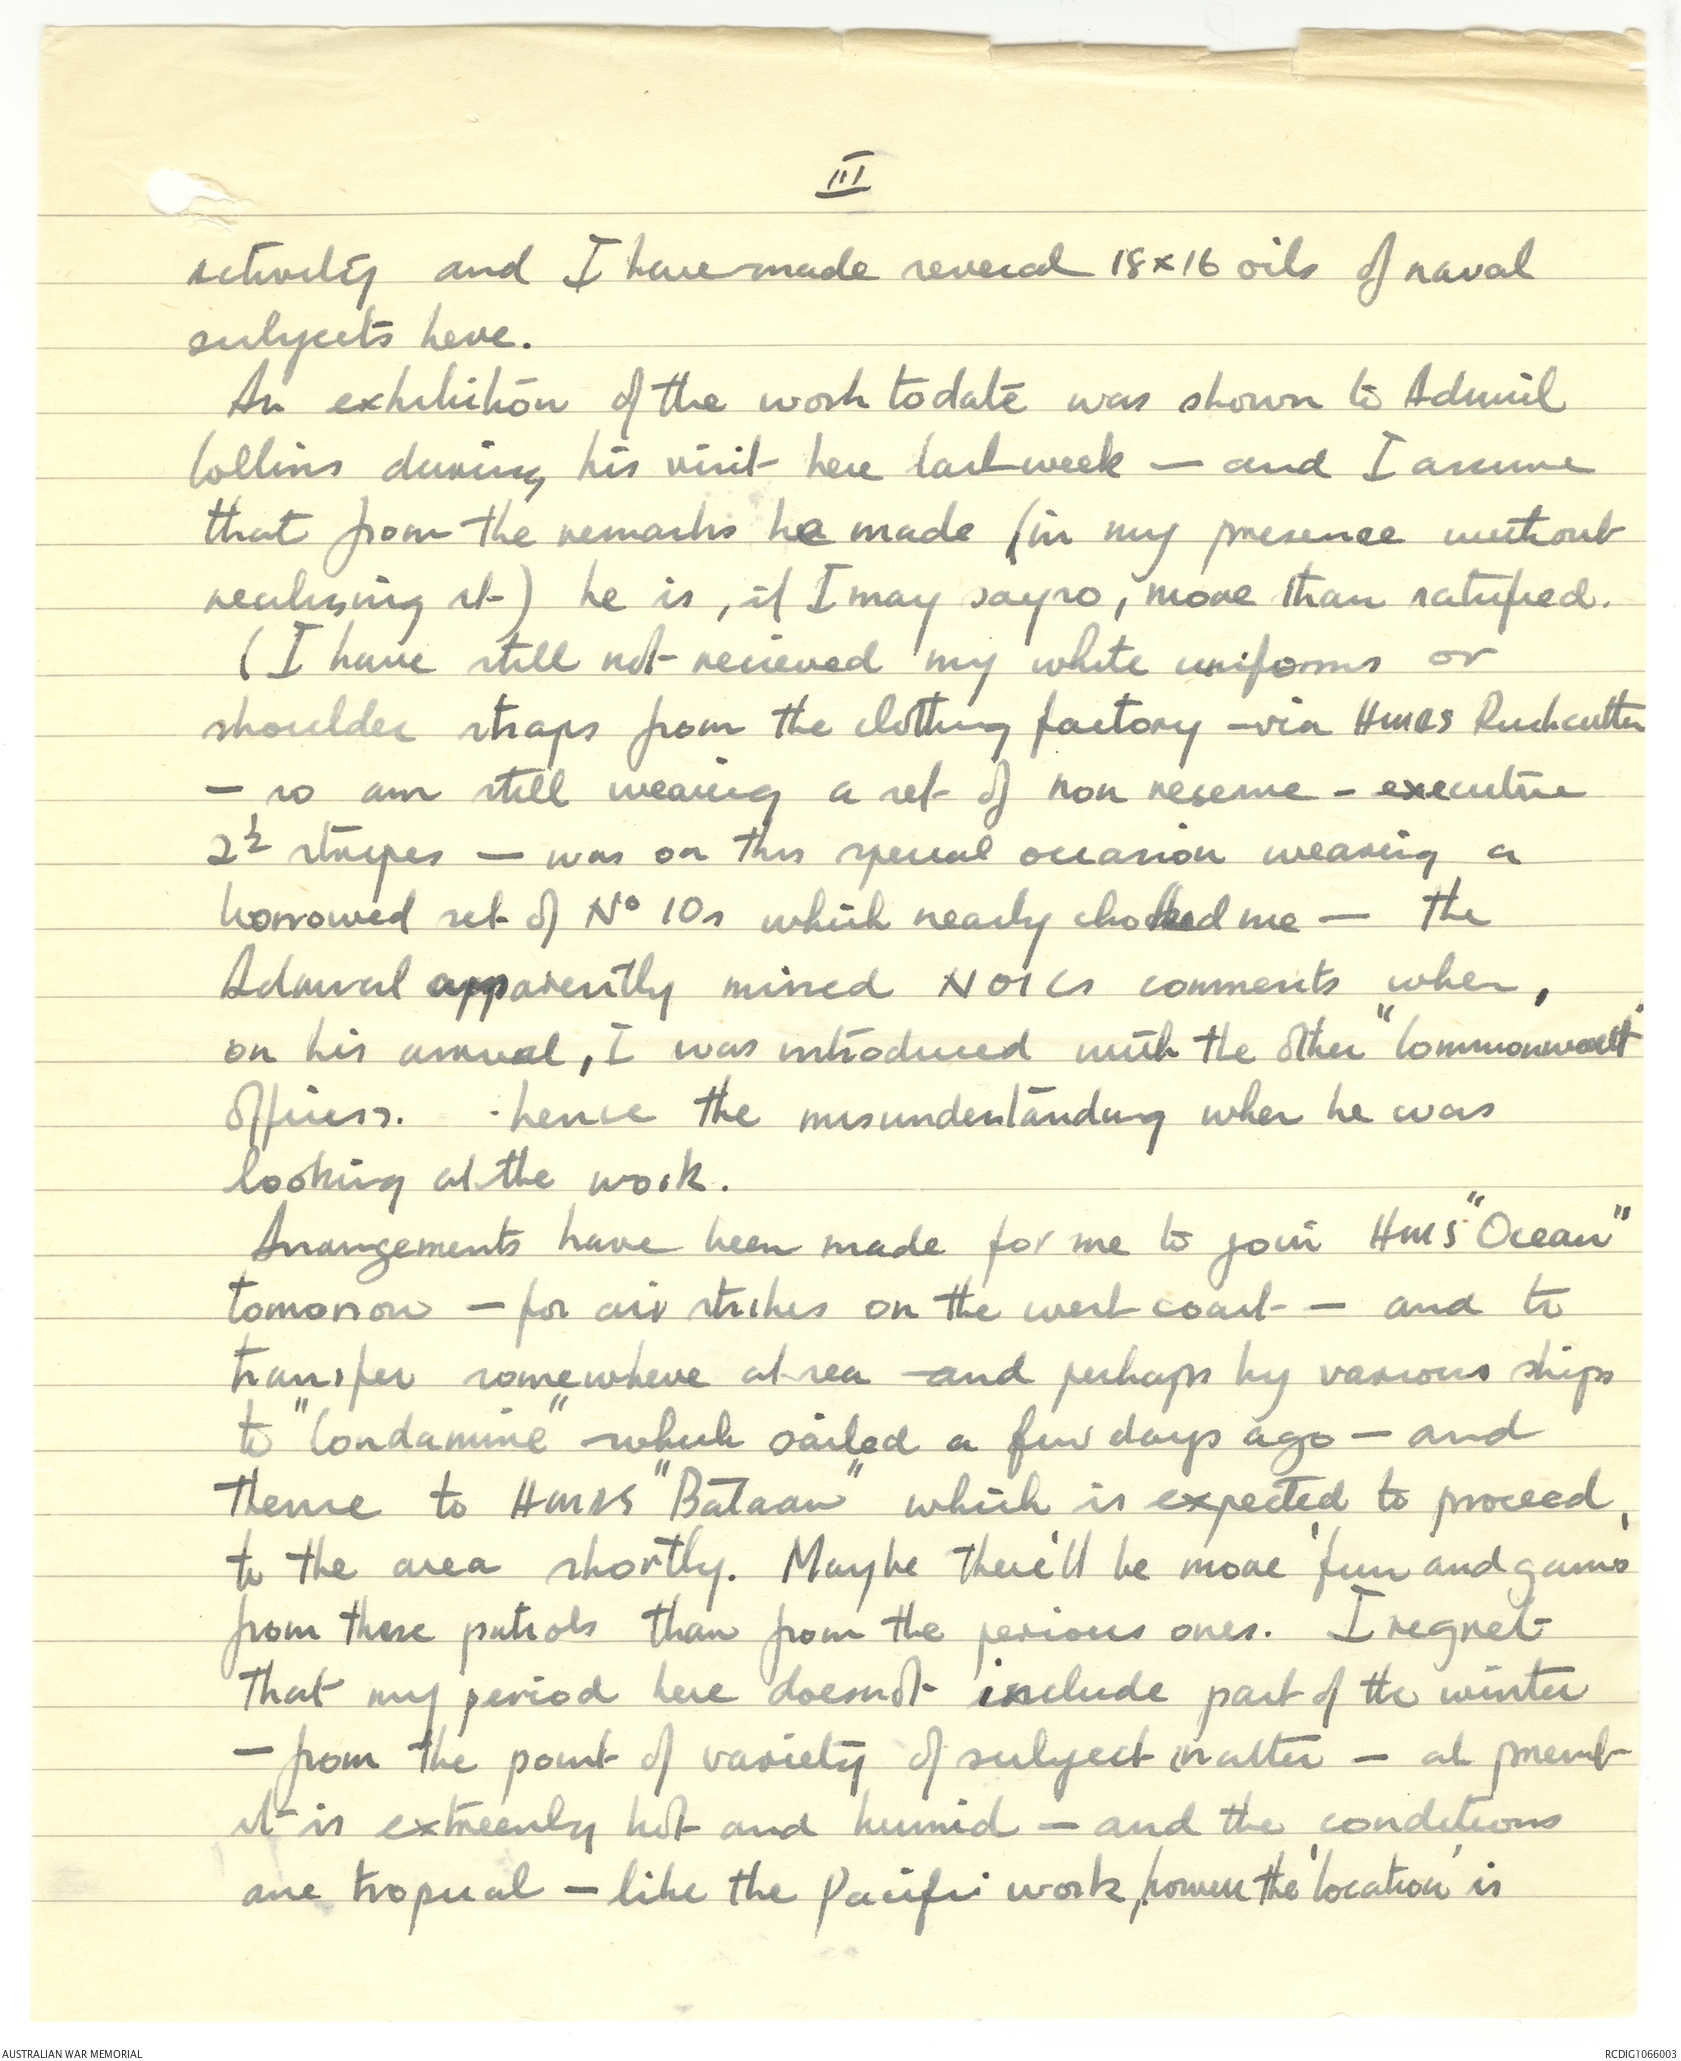 III
activity and I have made several 18x16 oils of naval
subjects here.
An exhibition of the work to date was shown to Admiral
Collins during his visit here last week — and I assume
that from the remarks he made (in my presence without
realising it) he is, if I may say so, more than satisfied.
(I have still not recieved my white uniforms or
shoulder straps from the clothing factory - via HMAS Rushcutter
— so am still wearing a set of non reserve - executive
2½ stripes — was on this special occasion wearing a
borrowed set of No 10s which nearly choked me — the
Admiral apparently missed NOICs comments when,
on his arrival, I was introduced with the other "Commonwealth"
officers. - hence the misunderstanding when he was
looking at the work.
Arrangements have been made for me to join HMS "Ocean"
tomorrow — for air strikes on the west coast — and to
transfer somewhere at sea and perhaps by various ships
to "Condamine" - which sailed a few days ago — and
thence to HMAS "Bataan" which is expected to proceed
to the area shortly. Maybe there'll be more 'fun and games'
from these patrols than from the perious ones. I regret
that my period here doesnot include part of the winter
— from the point of variety of subject matter — at present
it is extreemly hot and humid — and the conditions
are tropical — like the Pacific work, however the 'location' is
AUSTRALIAN WAR MEMORIAL
RCDIG1066003